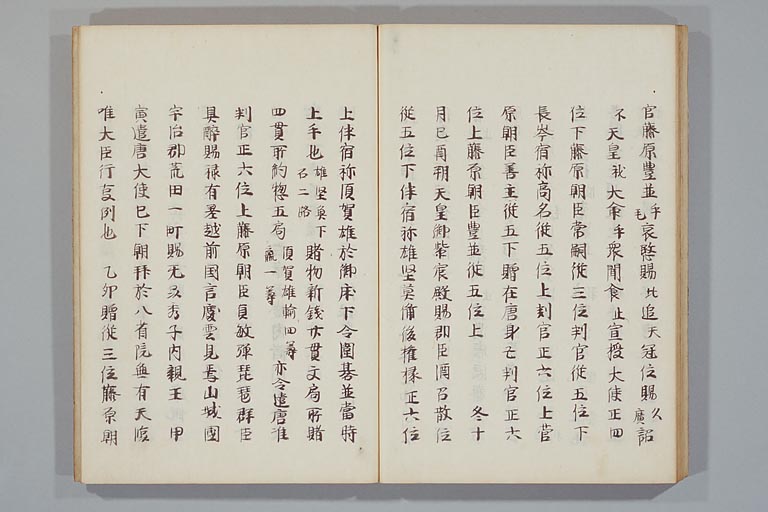 官藤原豊並乎毛哀愍賜比追天冠位賜久廣詔
不天皇我大命乎衆聞食止宣授大使正四
位下藤原朝臣常嗣從三位判官從五位下
長岑宿祢高名從五位上判官正六位上菅
原朝臣善主從五下贈在唐身亡判官正六
位上藤原朝臣豊並從五位上　冬十
月己酉朔天皇御紫宸殿賜郡臣酒召散位
從五位下伴宿祢雄堅莫備後権掾正六位
上伴宿祢須賀雄於御床下令圍碁並當時
上手也雄堅奐下石二路賭物新錢亦貫文局所賭
四貫所約惣五局須賀雄輸四籌贏一籌亦令遣唐准
判官正六位上藤原朝臣貞敏彈琵琶群臣
具醉賜禄有差越前国言慶雲見焉山城國
宇治郡荒田一町賜无品秀子内親王　甲
寅遣唐大使已下朝拜於八省院無有天臨
唯大臣行事例也　乙卯贈從三位藤原朝